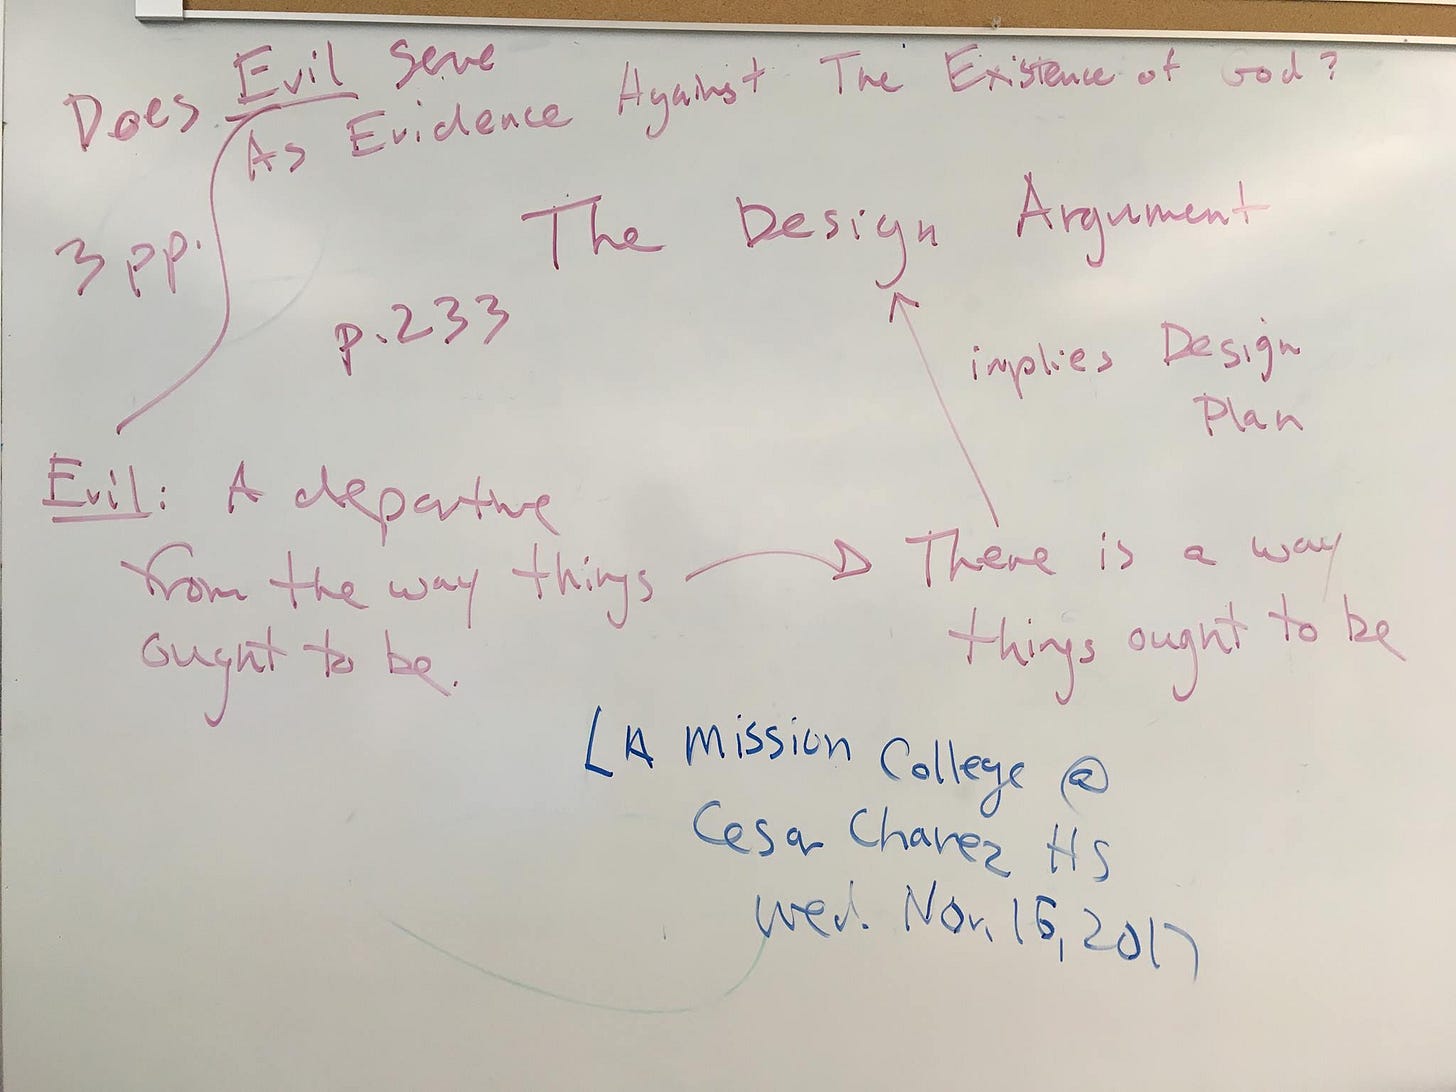 Does Evil Serve
As Evidence Against The Existence of God?
The Design Argument
3 pp.
p.233
implies Design
Plan
Evil: A departure
from the way things
ought to be.
There is a way
things ought to be
LA Mission College @
Cesar Chavez HS
Wed. Nov. 15, 2017